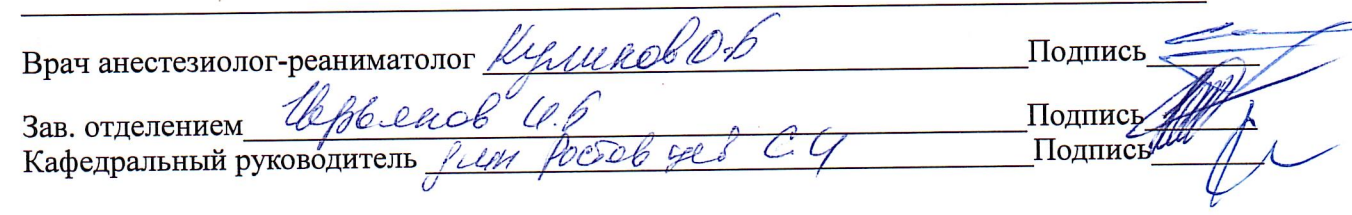 Врач анестезиолог-реаниматолог Куликов О.Б Подпись
Зав. отделением И.Б Подпись
Кафедральный руководитель дмн Ростовцев С.И Подпись